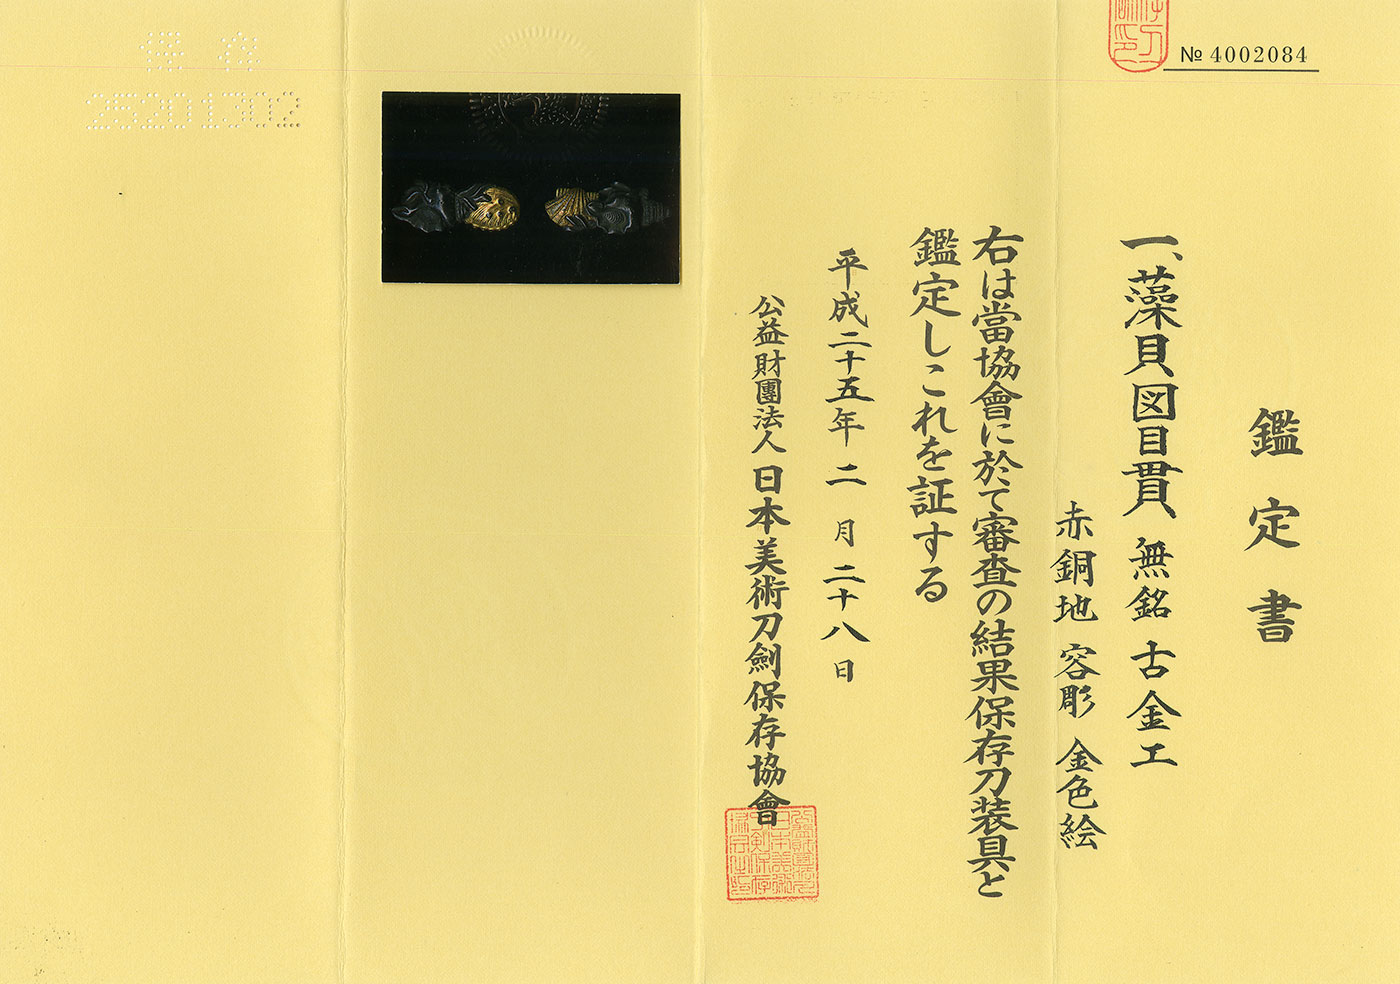 № 4002084
鑑定書
一、藻貝図目貫 無銘 古金工
赤銅地 容彫 金色絵
右は當協會に於て審査の結果保存刀装具と
鑑定しこれを証する
平成二十五年 二 月 二十八 日
公益財團法人 日本美術刀劍保存協會
25201302